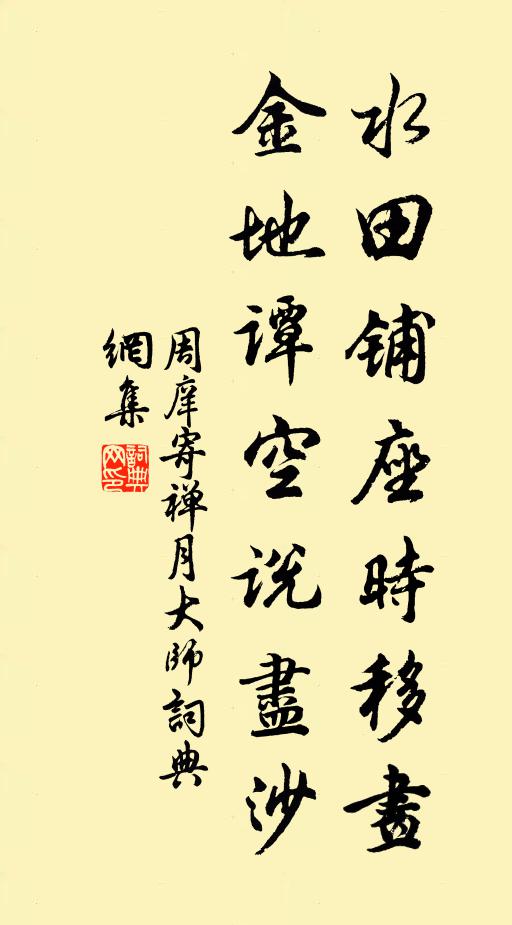 水田铺座時移畫
金地谭空说盡沙
周庠寄禅月大師詞典
網集
詞典
网印